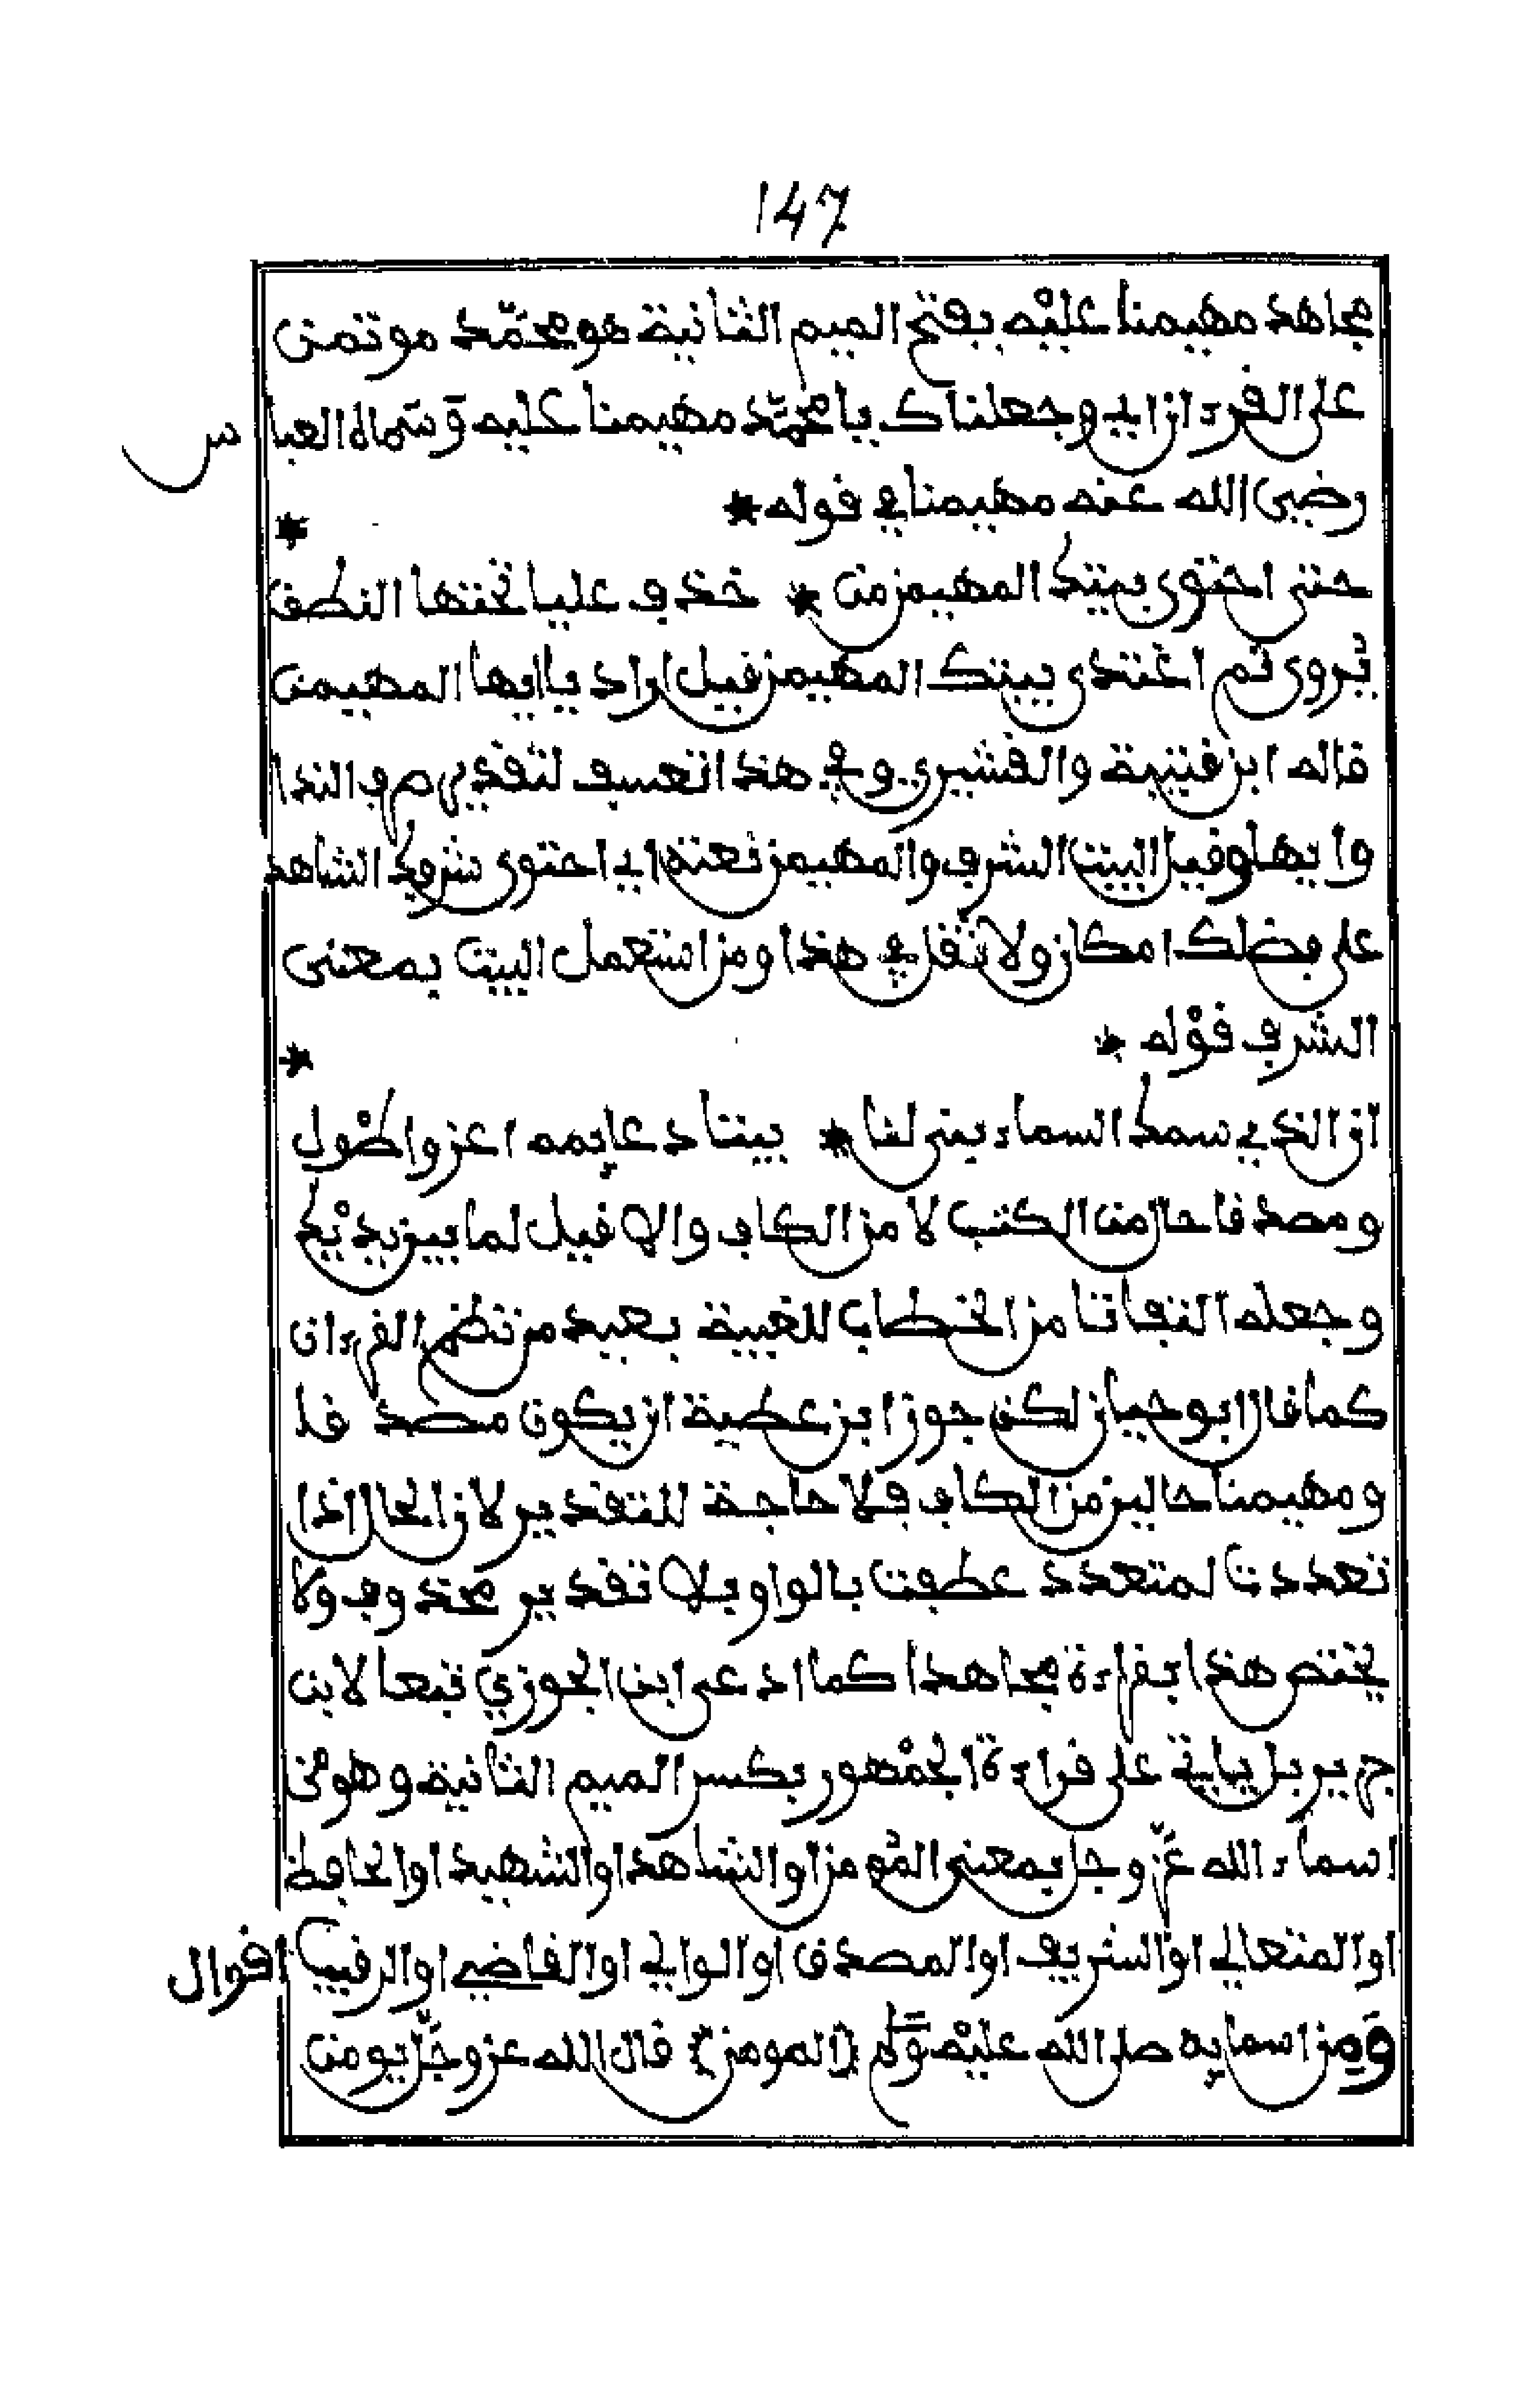 147
مجاهد مهيمنا عليه بفتح الميم الثانية هو محمد موتمن
على القرءان اي وجعلناك يا محمد مهيمنا عليه وسماه العباس
رضي الله عنه مهيمنا في قوله *
حتى احتوى بيتك المهيمن من * خندف عليا تحتها النطق *
يروى ثم اغتدى بيتك المهيمن قيل اراد يا ايها المهيمن
قاله ابن قتيبة والقشيري وفي هذا تعسف لتقديرهم في الندا
وايها وقيل البيت الشرف والمهيمن نعته اي احتوى شرفك الشاهد
على فضلك امكان ولا ثقل في هذا ومن استعمل البيت بمعنى
الشرف قوله *
ان الذي سمك السماء بنى لنا * بيتا دعايمه اعز واطول *
ومصدقا حال من الكتب لا من الكاف والا قيل لما بين يديك
وجعله التفاتا من الخطاب للغيبة بعيد من نظم القرءان
كما قال ابو حيان لكن جوز ابن عطية ان يكون مصدقا
ومهيمنا حالين من الكاف فلا حاجة للتقدير لان الحال اذا
تعددت لمتعدد عطفت بالواو بلا تقدير محذوف ولا
يختص هذا بقراءة مجاهد كما ادعى ابن الجوزي تبعا لابن
جرير بل ياتي على قراءة الجمهور بكسر الميم الثانية وهو من
اسماء الله عز وجل بمعنى المومن او الشاهد او الشهيد او الحافظ
او المتعالي او الشريف او المصدق او الوالي او القاضي او الرقيب اقوال
ومن اسمايه صلى الله عليه وسلم (المومن) قال الله عز وجل يومن